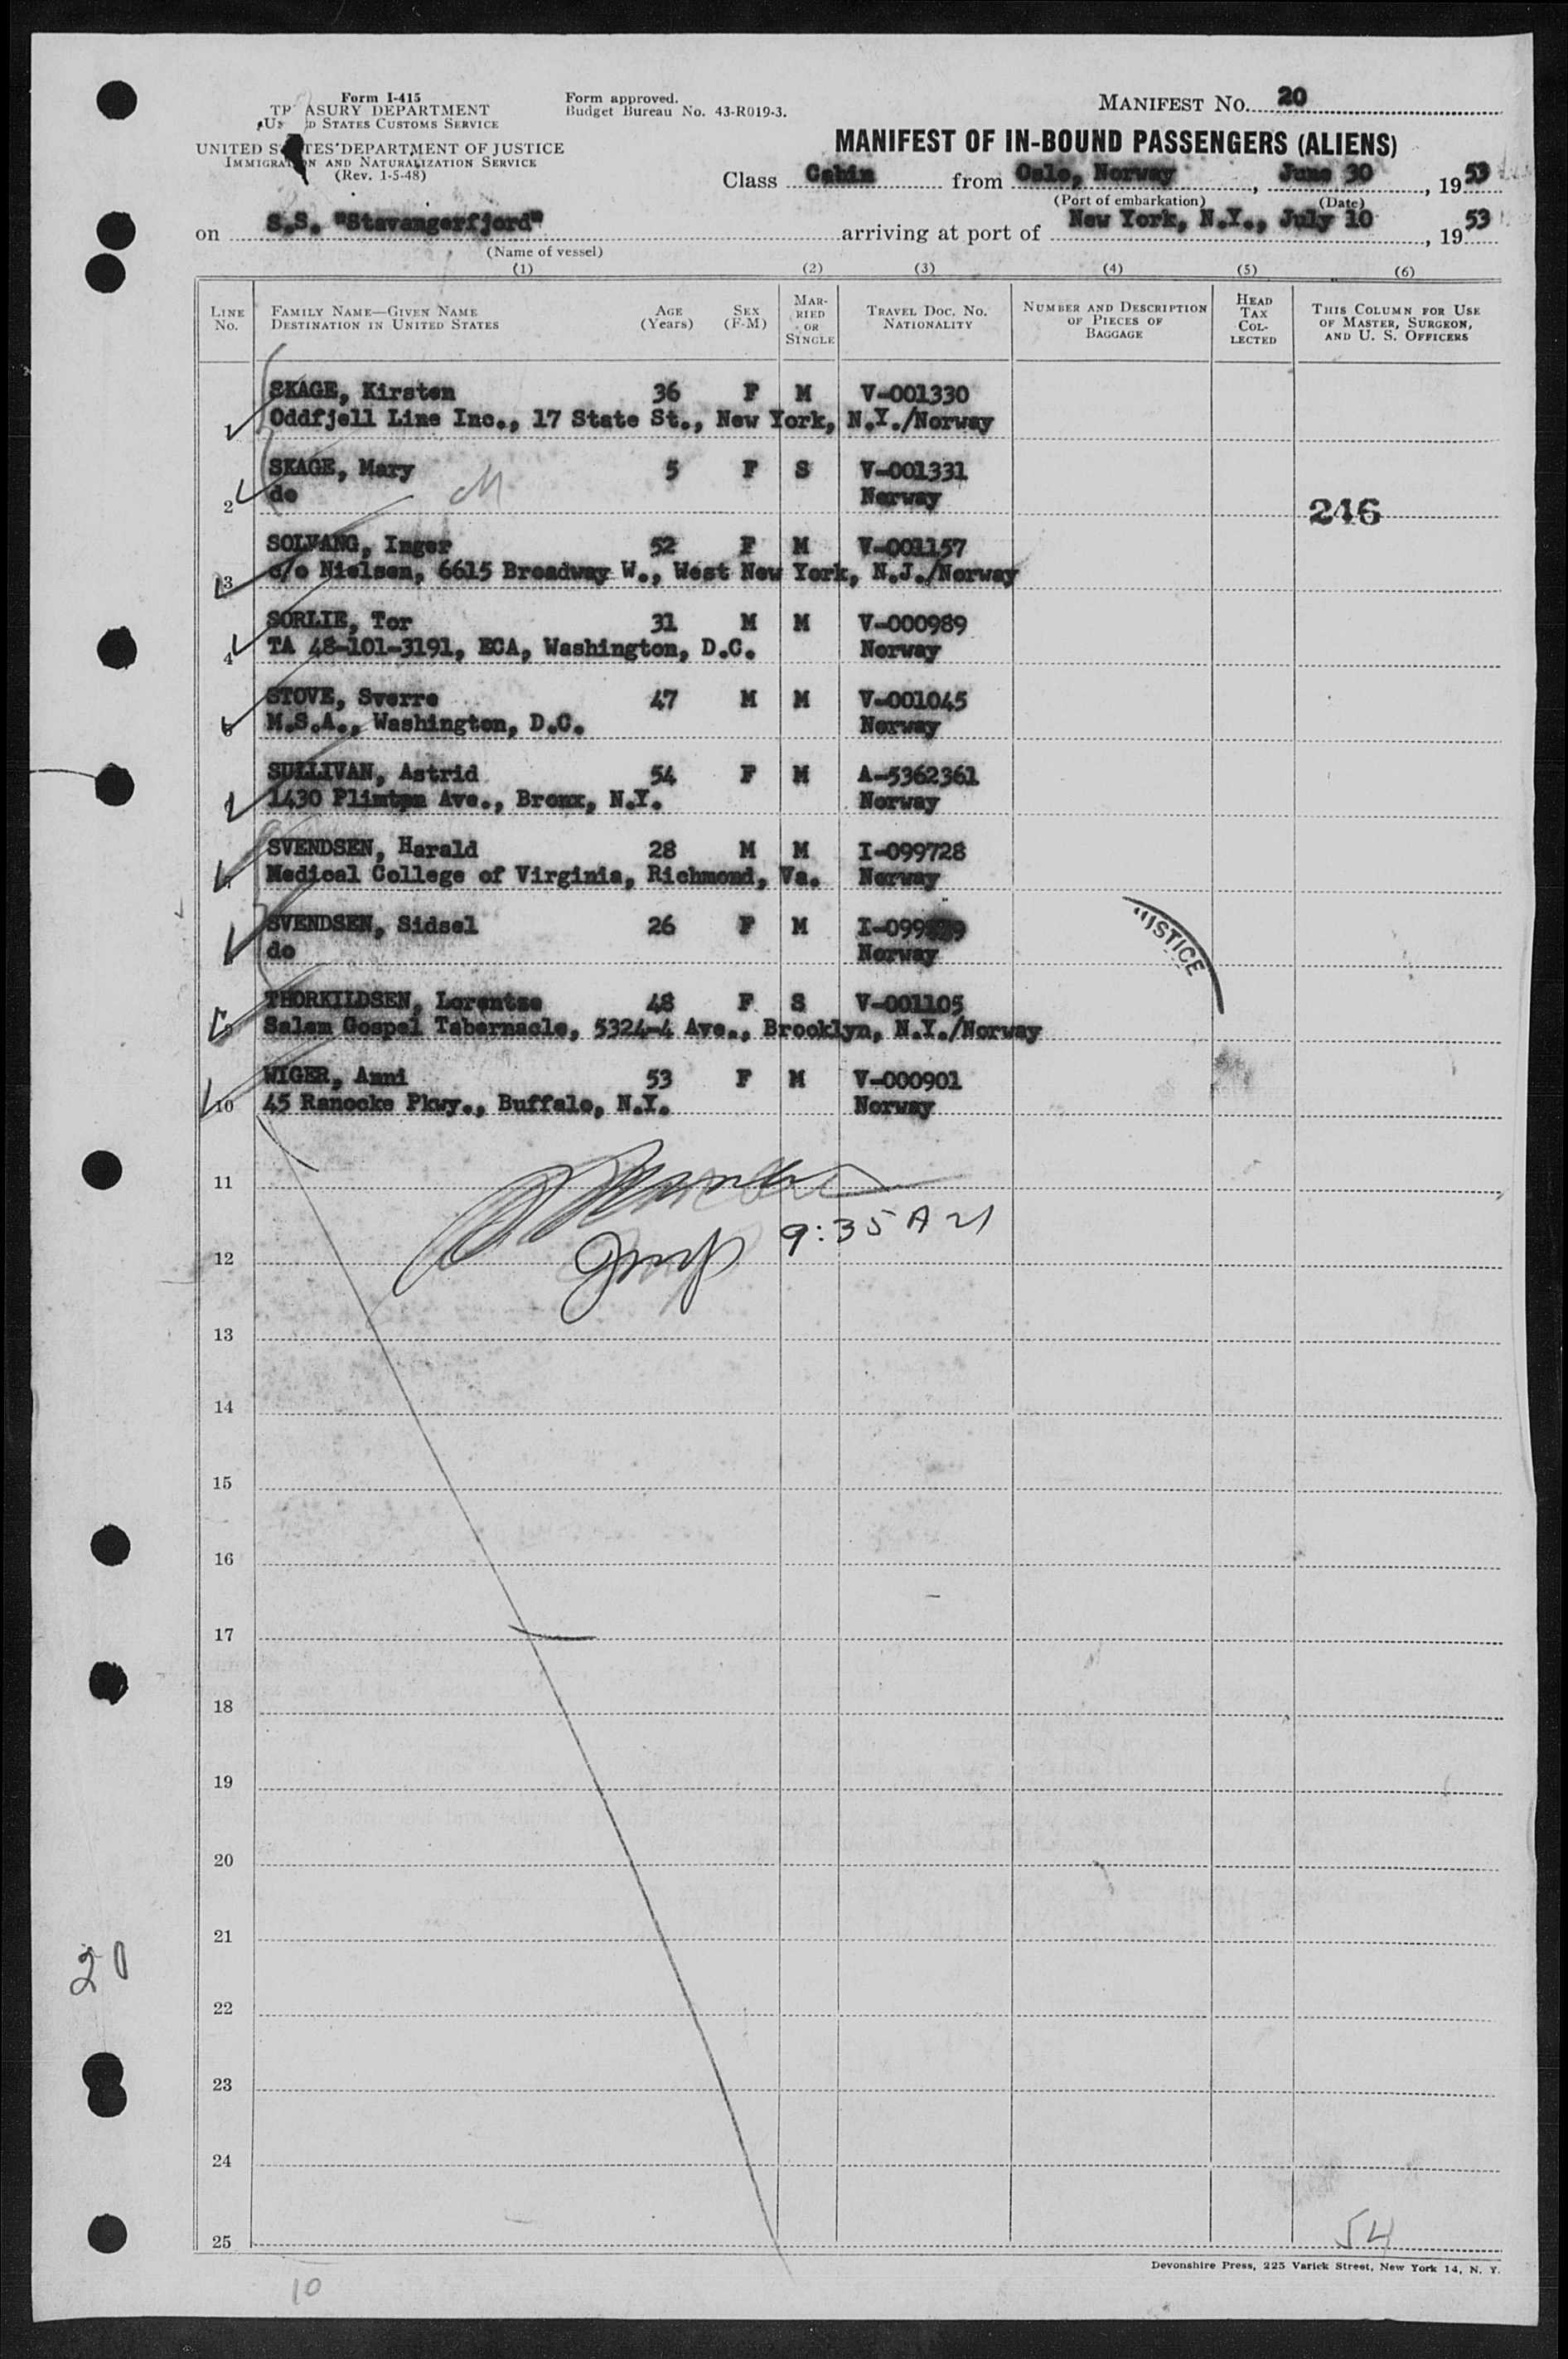 Form I-415
TREASURY DEPARTMENT
UNITED STATES CUSTOMS SERVICE
UNITED STATES DEPARTMENT OF JUSTICE
IMMIGRATION AND NATURALIZATION SERVICE
(Rev. 1-5-48)
Form approved.
Budget Bureau No. 43-R019-3.
MANIFEST NO. 20
MANIFEST OF IN-BOUND PASSENGERS (ALIENS)
Class Cabin from Oslo, Norway, June 30, 1953
(Port of embarkation) (Date)
on S.S. "Stavangerfjord" arriving at port of New York, N.Y., July 10, 1953
(Name of vessel)
(1) (2) (3) (4) (5) (6)
LINE NO. FAMILY NAME—GIVEN NAME DESTINATION IN UNITED STATES AGE (Years) SEX (F-M) MARRIED OR SINGLE TRAVEL DOC. NO. NATIONALITY NUMBER AND DESCRIPTION OF PIECES OF BAGGAGE HEAD TAX COLLECTED THIS COLUMN FOR USE OF MASTER, SURGEON, AND U. S. OFFICERS
SKAGE, Kirsten 36 F M V-001330
Oddfjell Line Inc., 17 State St., New York, N.Y./Norway
SKAGE, Mary 5 F S V-001331
2 do Norway
246
SOLVANG, Inger 52 F M V-001157
3 c/o Nielsen, 6615 Broadway W., West New York, N.J./Norway
SORLIE, Tor 31 M M V-000989
4 TA 48-101-3191, ECA, Washington, D.C. Norway
STOVE, Sverre 47 M M V-001045
5 M.S.A., Washington, D.C. Norway
SULLIVAN, Astrid 54 F M A-5362361
1430 Plimton Ave., Bronx, N.Y. Norway
SVENDSEN, Harald 28 M M I-099728
Medical College of Virginia, Richmond, Va. Norway
SVENDSEN, Sidsel 26 F M
do Norway
USTICE
THORKILDSEN, Lorentze 48 F S V-001105
9 Salem Gospel Tabernacle, 5324-4 Ave., Brooklyn, N.Y./Norway
WIGER, Anni 53 F M V-000901
10 45 Ranocke Pkwy., Buffalo, N.Y. Norway
11
9:35 A
12
13
14
15
16
17
18
19
20
21
20
22
23
24
25
54
Devonshire Press, 225 Varick Street, New York 14, N. Y.
10